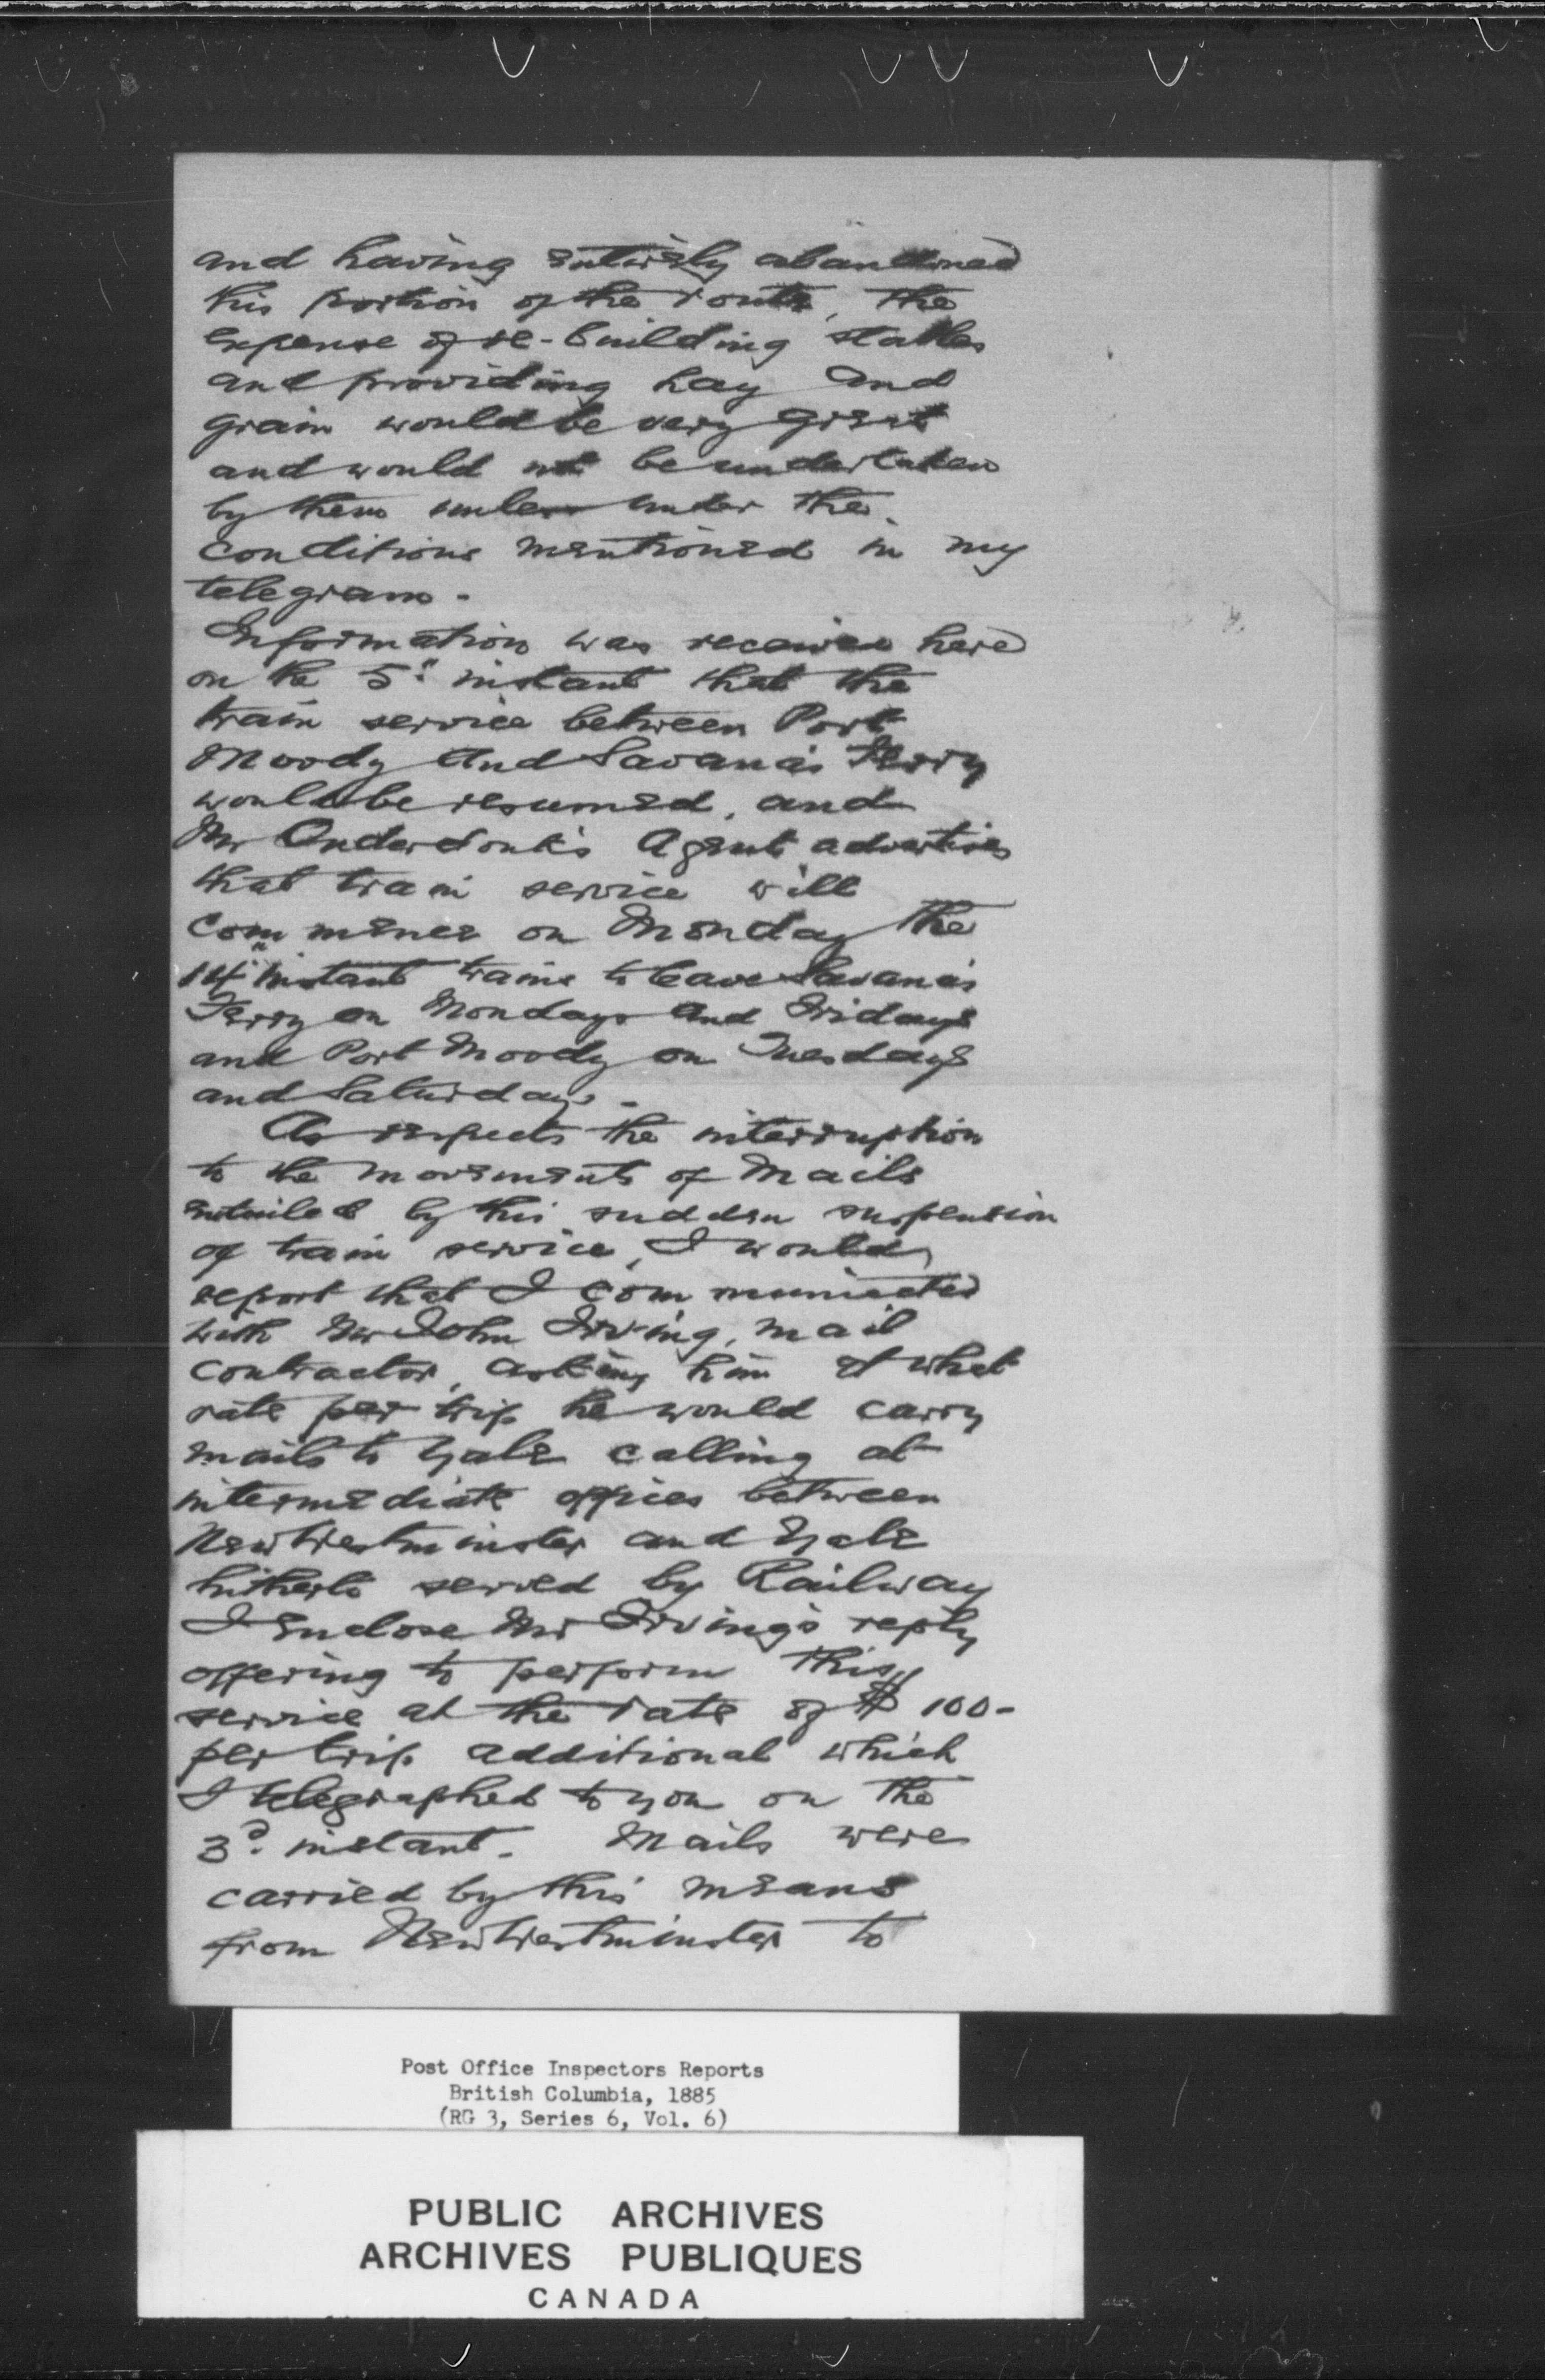 and having entirely abandoned
this portion of the route, the
expense of re-building stables
and providing hay and
grain would be very great
and would not be undertaken
by them unless under the
conditions mentioned in my
telegram -
Information was received here
on the 5" instant that the
train service between Port
Moody and Savana's Ferry
would be resumed, and
Mr Onderdonk's Agent advertises
that train service will
commence on Monday the
14" instant trains to leave Savana's
Ferry on Mondays and Fridays
and Port Moody on Tuesdays
and Saturdays -
As respects the interruption
to the movements of Mails
entailed by this sudden suspension
of train service, I would
report that I communicated
with Mr John Irving, mail
contractor, asking him at what
rate per trip he would carry
mails to Yale calling at
intermediate offices between
New Westminster and Yale
hitherto served by Railway
I enclose Mr Irving's reply
offering to perform this
service at the rate of $100-
per trip additional which
I telegraphed to you on the
3d. instant - Mails were
carried by this means
from New Westminster to
Post Office Inspectors Reports
British Columbia, 1885
(RG 3, Series 6, Vol. 6)
PUBLIC ARCHIVES
ARCHIVES PUBLIQUES
CANADA